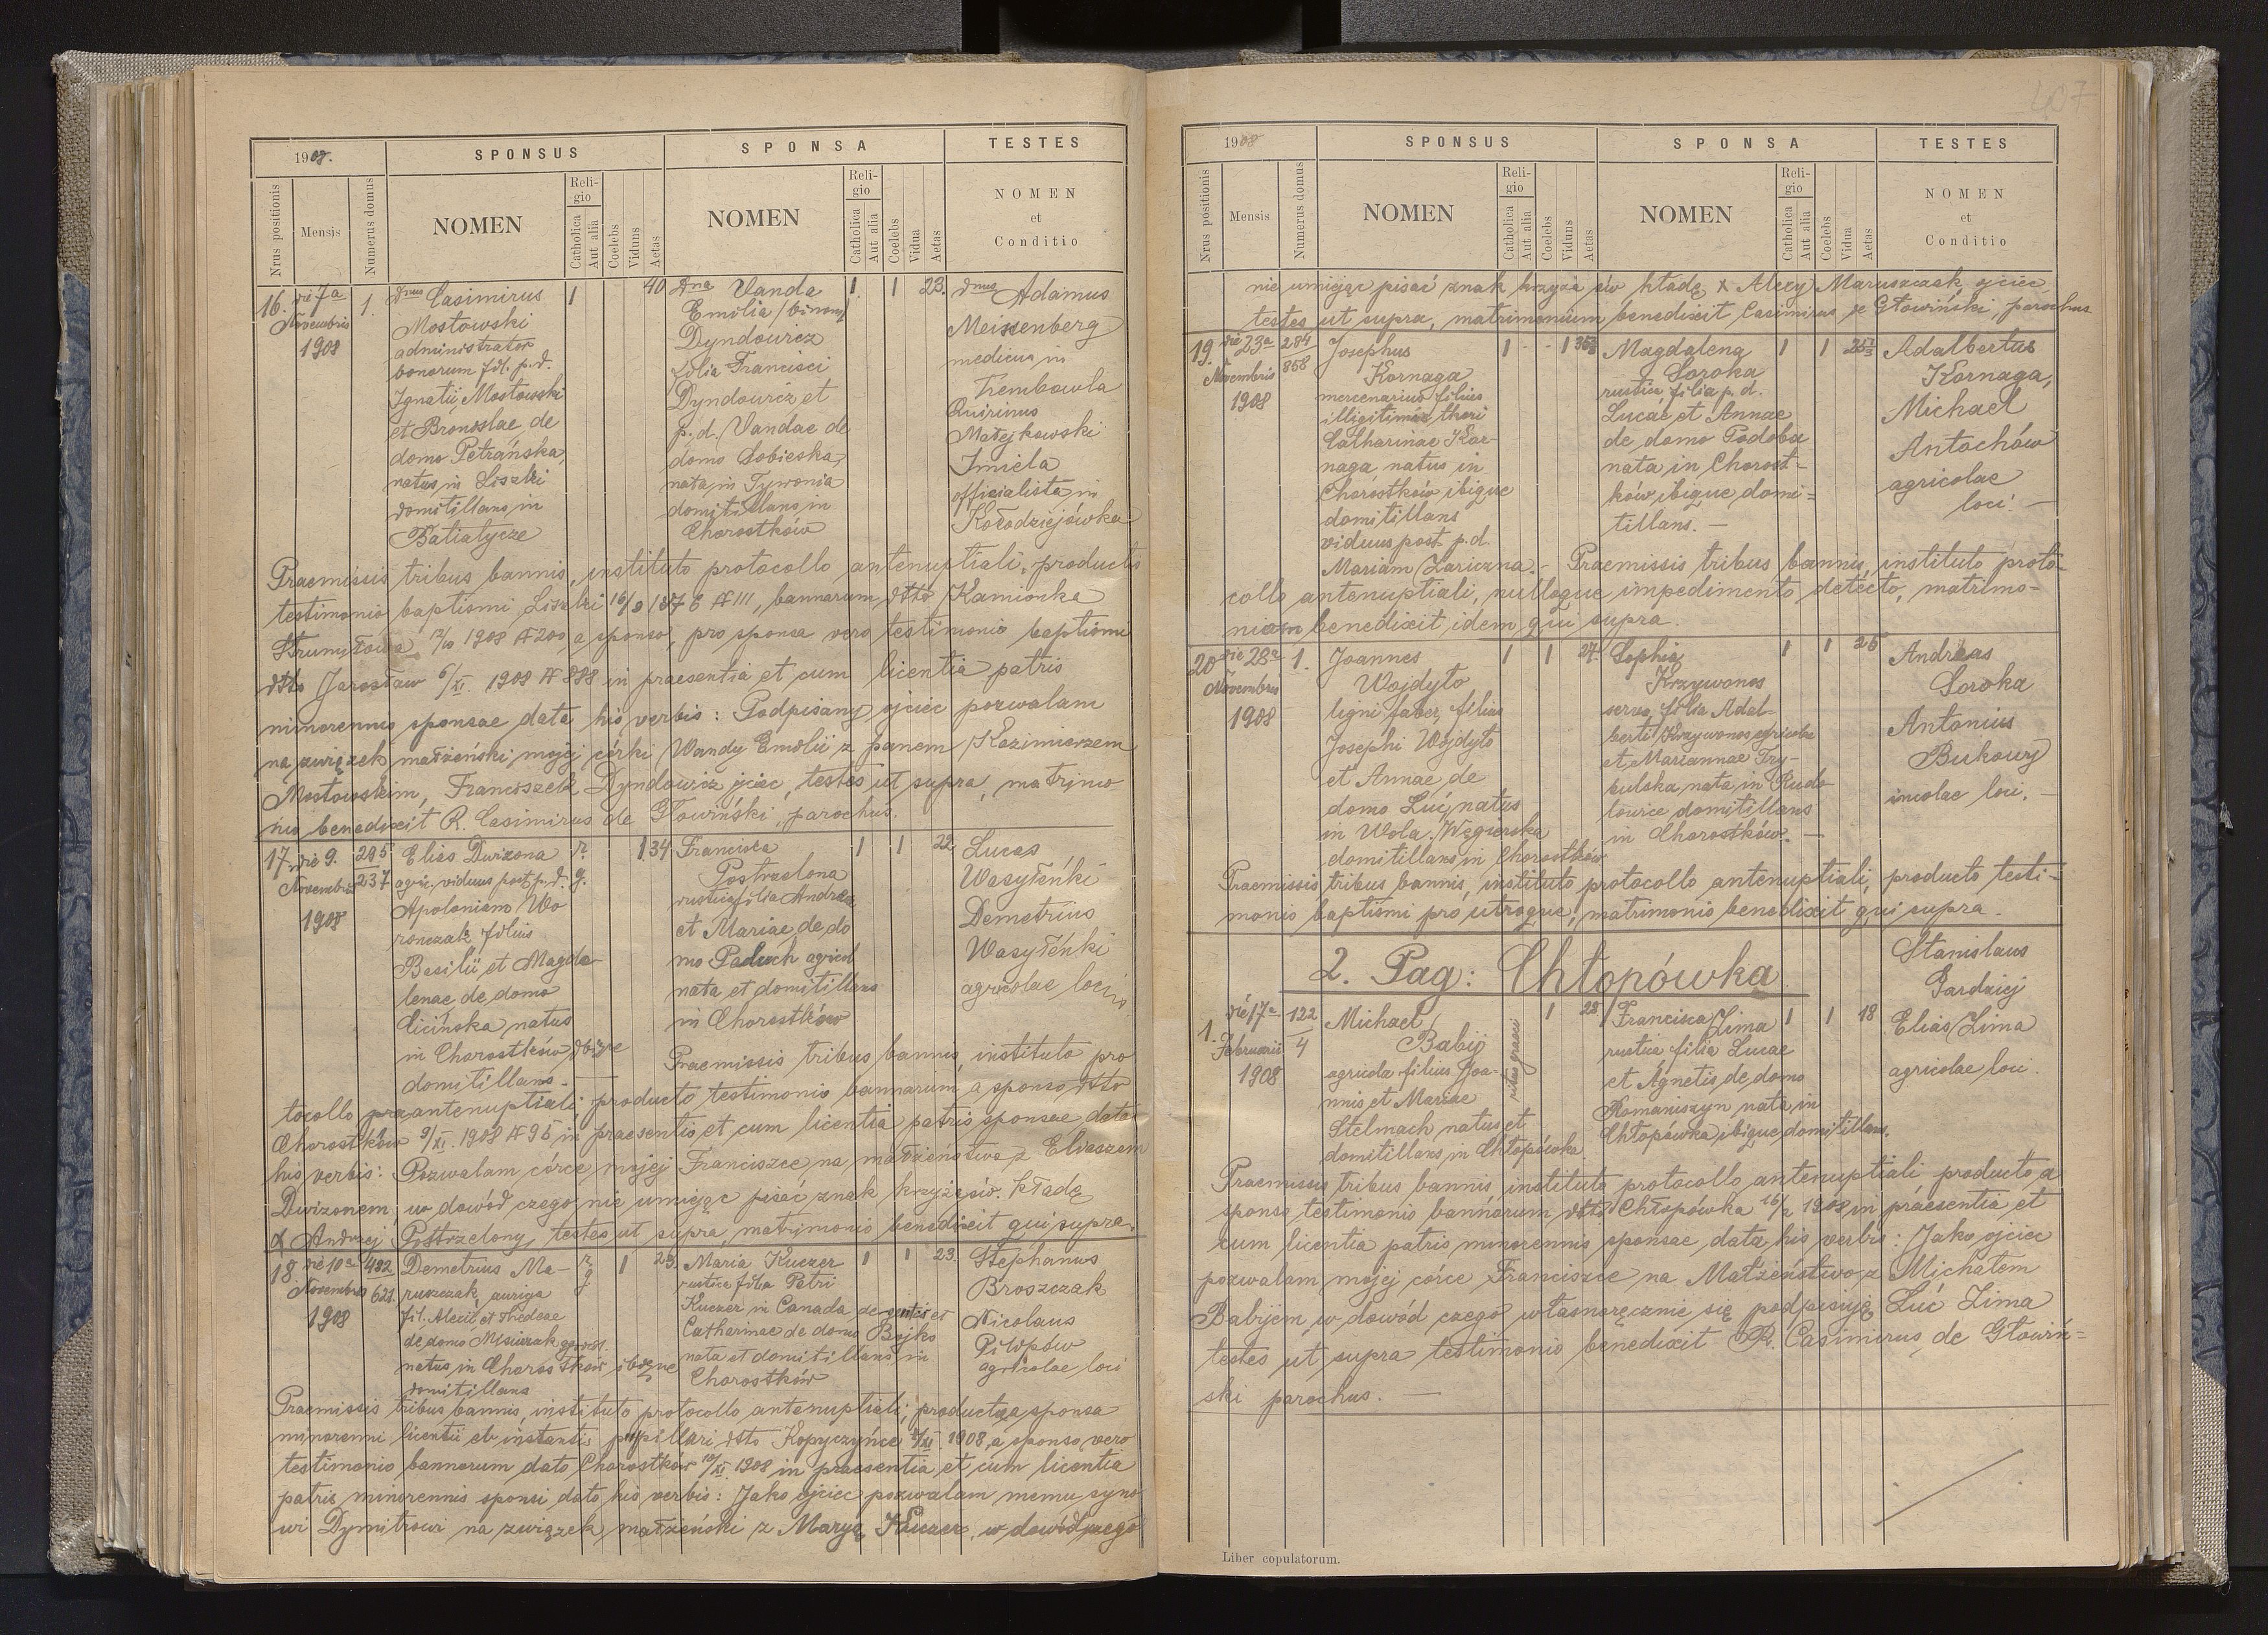 1908.
SPONSUS
SPONSA
TESTES
Nrus positionis
Mensis
Numerus domus
NOMEN
Religio
Catholica
Aut alia
Coelebs
Viduus
Aetas
NOMEN
Religio
Catholica
Aut alia
Coelebs
Vidua
Aetas
NOMEN
et
Conditio
16. die 7a Novembris 1908
1.
Dnus Casimirus
Mostowski
administrator
bonorum fil. p.d.
Ignatii Mostowski
et Bronoslae de
domo Petrańska,
natus in Liszki
domitillans in
Batiatycze
1 40
Dna Vanda
Emilia (binom)
Dyndowicz
filia Francisci
Dyndowicz et
p.d. Vandae de
domo Sobieska,
nata in Tywonia
domitillans in
Chorostków
1. 1 23.
dnus Adamus
Meissenberg
medicus in
Trembowla
Quirinus
Matejkowski
Imiela
officialista in
Kołodziejówka
Praemissis tribus bannis, instituto protocollo antenuptiali, producto
testimonio baptismi Liszki 16/9 1876 N III, bannorum dtto Kamionka
Strumiłowa 12/10 1908 N 200 a sponso, pro sponsa vero testimonio baptismi
dtto Jarosław 6/XI. 1908 N 888 in praesentia et cum licentia patris
minorennis sponsae data his verbis: Podpisany ojciec pozwalam
na związek małżeński mojej córki Wandy Emilii z panem Kazimierzem
Mostowskim, Franciszek Dyndowicz ojciec, testes ut supra, matrimo
nio benedixit R. Casimirus de Głowiński, parochus.
17. die 9. Novembris 1908
295
237
Elias Dwizona
agric. viduus post p.d.
Apoloniam Wo
ronczak filius
Basilii et Magda-
lenae de domo
Cicińska natus
in Chorostków ibique
domitillans.
r. g. 1 34
Francisca
Postrzelona
rustica filia Andrea
et Mariae de do
mo Paduch agricol
nata et domitillans
in Chorostków
1 1 22
Lucas
Wasyłeńki
Demetrius
Wasyłeńki
agricolae loci
Praemissis tribus bannis, instituto pro
tocollo praantenuptiali, producto testimonio bannorum a sponso dtto
Chorostków 9/XI. 1908 N 95 in praesentia et cum licentia patris sponsae data
his verbis: Pozwalam córce mojej Franciszce na małżeństwo z Eliaszem
Dwizonem, w dowód czego nie umiejąc pisać znak krzyża św. kładę
X Andrzej Postrzelony, testes ut supra, matrimonio benedixit qui supra.
18. die 10a Novembris 1908
482
621.
Demetrius Ma-
ruszczak, auriga
fil. Alexii et Thedeae
de domo Misiurak
natus in Chorostków ibique
domitillans
r g 1 23.
Maria Kuczer
rustica filia Petri
Kuczer in Canada de gentis et
Catharinae de domo Bojko
nata et domitillans in
Chorostków
1 1 23.
Stephanus
Broszczak
Nicolaus
Piłipów
agricolae loci
Praemissis tribus bannis, instituto protocollo antenuptiali, producta a sponsa
minorenni licentii ab instantia pupillari dtto Kopyczyńce 1908, a sponso vero
testimonio bannorum dato Chorostków 10/XI 1908 in praesentia et cum licentia
patris minorennis sponsi dato his verbis: Jako ojciec pozwalam memu syno
wi Dymitrowi na związek małżeński z Maryą Kuczer, w dowód czego
407
1908
SPONSUS
SPONSA
TESTES
Nrus positionis
Mensis
Numerus domus
NOMEN
Religio
Catholica
Aut alia
Coelebs
Viduus
Aetas
NOMEN
Religio
Catholica
Aut alia
Coelebs
Vidua
Aetas
NOMEN
et
Conditio
nie umiejąc pisać znak krzyża św kładę X Alexy Maruszczak, ojciec
testes ut supra, matrimonium benedixit Casimirus de Głowiński, parochus
19. die 23a Novembris 1908
284
858
Josephus
Kornaga
mercenarius filius
illigitimix thori
Catharinae Kor-
naga natus in
Chorostków ibique
domitillans
viduus post p.d.
Mariam Zariczna.-
1 - - 1
Magdalena
Soroka
rustica filia p.d.
Lucae et Annae
de domo Podoba
nata in Chorost-
ków ibique domi=
tillans. -
1 1
Adalbertus
Kornaga,
Michael
Antochów
agricolae
loci. -
Praemissis tribus bannis, instituto proto-
collo antenuptiali, nulloque impedimento detecto, matrimo-
nium benedixit idem qui supra.
20 die 28a Novembris 1908
1.
Joannes
Wojdyło
ligni faber, filius
Josephi Wojdyło
et Annae de
domo Luć, natus
in Wola Węgierska
domitillans in Chorostków
1 1 27.
Sophia
Krzywonos
serva, filia Adal-
berti Krzywonos agricola
et Mariannae Try-
bulska, nata in Rudo
łowice domitillans
in Chorostków. -
1 1 25
Andreas
Soroka
Antonius
Bukowy
incolae loci. -
Praemissis tribus bannis, instituto protocollo antenuptiali, producto testi=
monio baptismi pro utroque, matrimonio benedixit qui supra.
2. Pag: Chłopówka
1. die 17a Februarii 1908
122
4
Michael
Babij
agricola filius Joa-
nnis et Mariae
Stelmach natus et
domitillans in Chłopówka.
ritus graeci
1 22
Francisca Zima
rustica filia Lucae
et Agnetis de domo
Romaniszyn nata in
Chłopówka ibique domitillans.
1 1 18
Stanislaus
Gardziej
Elias Zima
agricolae loci.
Praemissis tribus bannis, instituto protocollo antenuptiali, producto a
sponso testimonio bannorum dtto Chłopówka 16/2 1908 in praesentia et
cum licentia patris minorennis sponsae data his verbis: Jako ojciec
pozwalam mojej córce Franciszce na Małżeństwo z Michałem
Babijem, w dowód czego własnoręcznie się podpisuję Luć Zima
testes ut supra testimonio benedixit R. Casimirus de Głowiń=
ski parochus. -
Liber copulatorum.